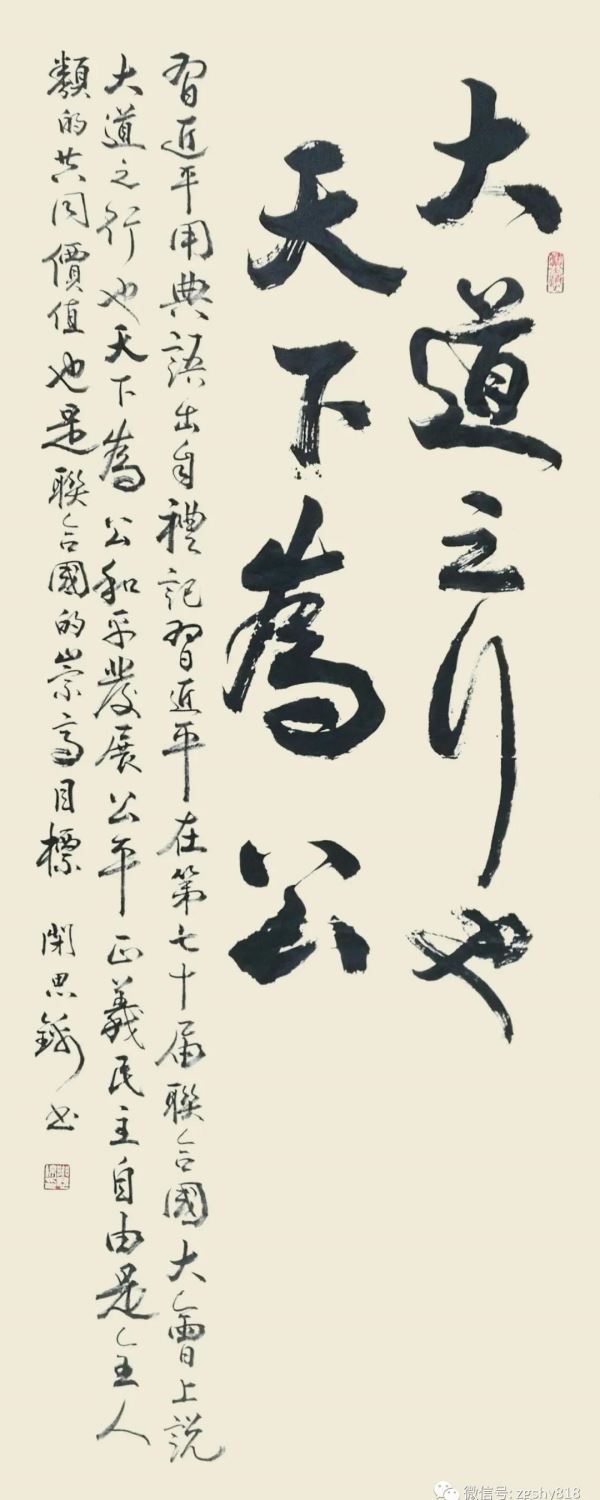 大道之行也
天下為公
習近平用典語出自禮記習近平在第七十届聯合國大會上説
大道之行也天下為公和平發展公平正義民主自由是全人
類的共同價值也是聯合國的崇高目標 閑思錦书
微信号: zgshy818